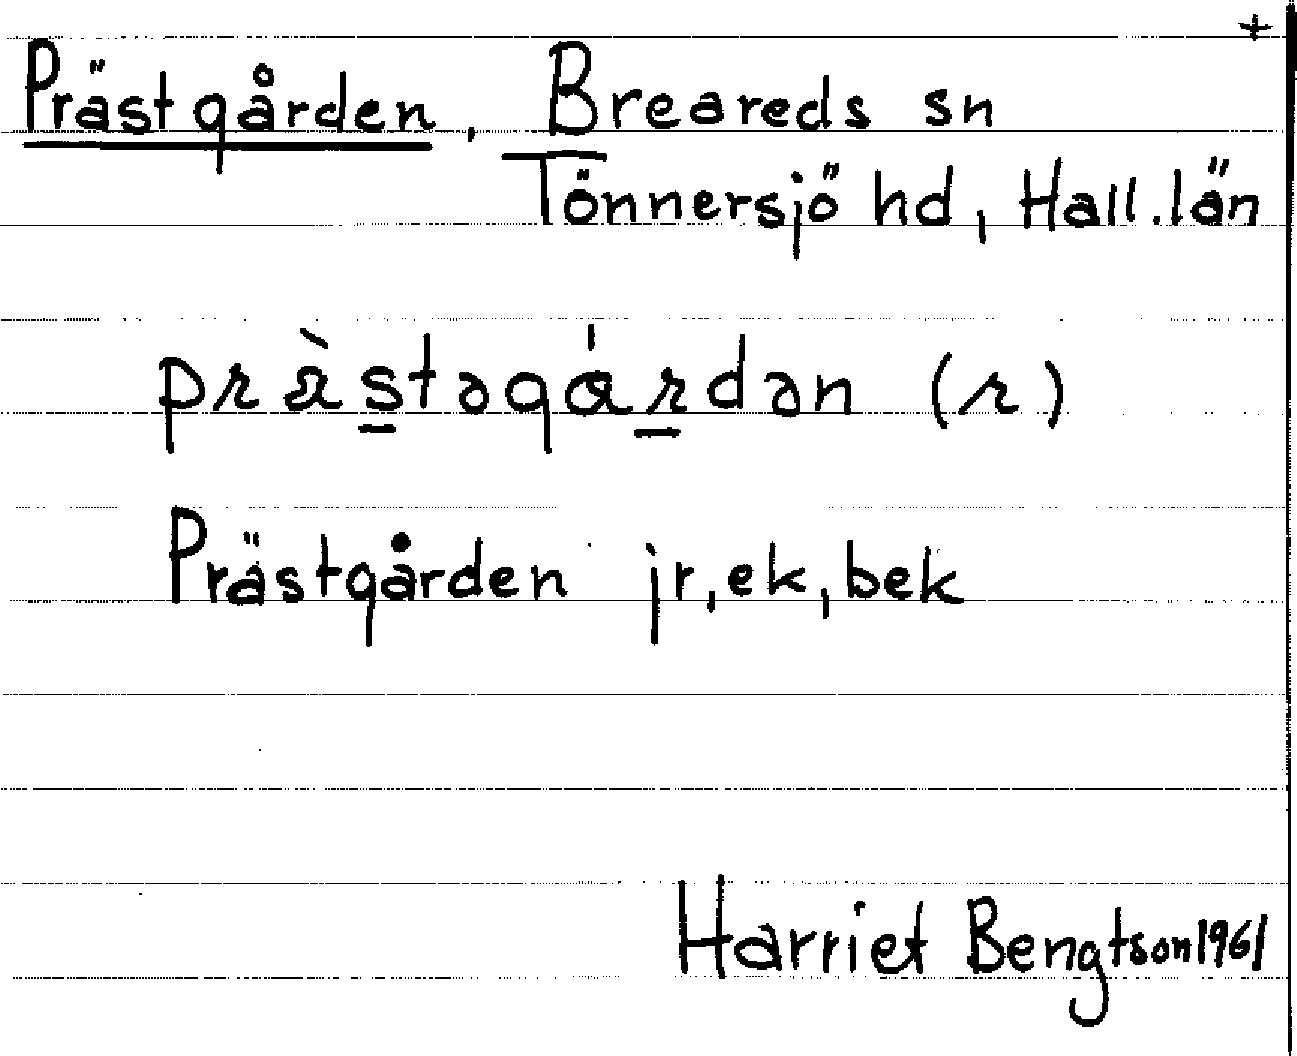 +
Prästgården, Breareds sn
Tönnersjö hd, Hall. län
prä̀s̲təgá̊r̲dən (r)
Prästgården jr, ek, bek
Harriet Bengtson 1961